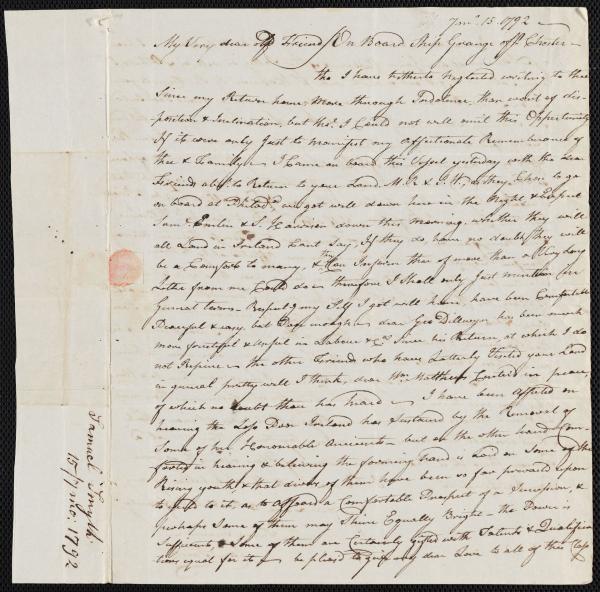 7mo. 15. 1792
My Very dear Friend / On Board Ship Grange off Chester
tho I have hitherto Neglected writing to thee
Since my Return home, more through Indolence, than want of dis-
position & Inclination, but tho' I Could not well omit this Opportunity
If it were only Just to manifest my affectionate Remembrance of
thee & Family. I Came on board this Vessel yesterday with the dear
Friends abt. to Return to your Land. M.R & S.W. as they Chose to go
on board at Philada. we got well down here in the Night & Expect
Saml. Emlen & S. Harrison down this morning, whether they will
all Land in Ireland Cant Say, If they do, have no doubt they will
be a Comfort to many, & they Can Inform thee of more than a Very long
Letter from me Could do & therefore I Shall only Just mention for
General terms. Respectg. my Self I got well home, have been Comfortable
Peaceful & easy, but Poor enough dear Geo Dillwyn has been much
more fruitful & Useful in Labour &c. Since his Return, at which I do
not Repine the other Friends who have Latterly Visited your Land
in general pretty well I think, dear Wm. Matthews Ended in peace,
of which no doubt thou has heard I have been affected on
hearing the Loss Dear Ireland has Sustained by the Removal of
Some of her Honourable Ancients but on the other hand Com-
forted in hearing & believing the forming hand is Laid on Some of the
Rising youth & that divers of them have been so far prevailed upon
to to it, as to afford a Comfortable Prospect of a Succession, &
perhaps Some of them may Shine Equally Bright the Power is
Sufficient, Some of them are Certainly gifted with Talents & Qualifica
tions equal for it be pleased to give my dear Love to all of this Class
Samuel Smith
15/7 mo: 1792